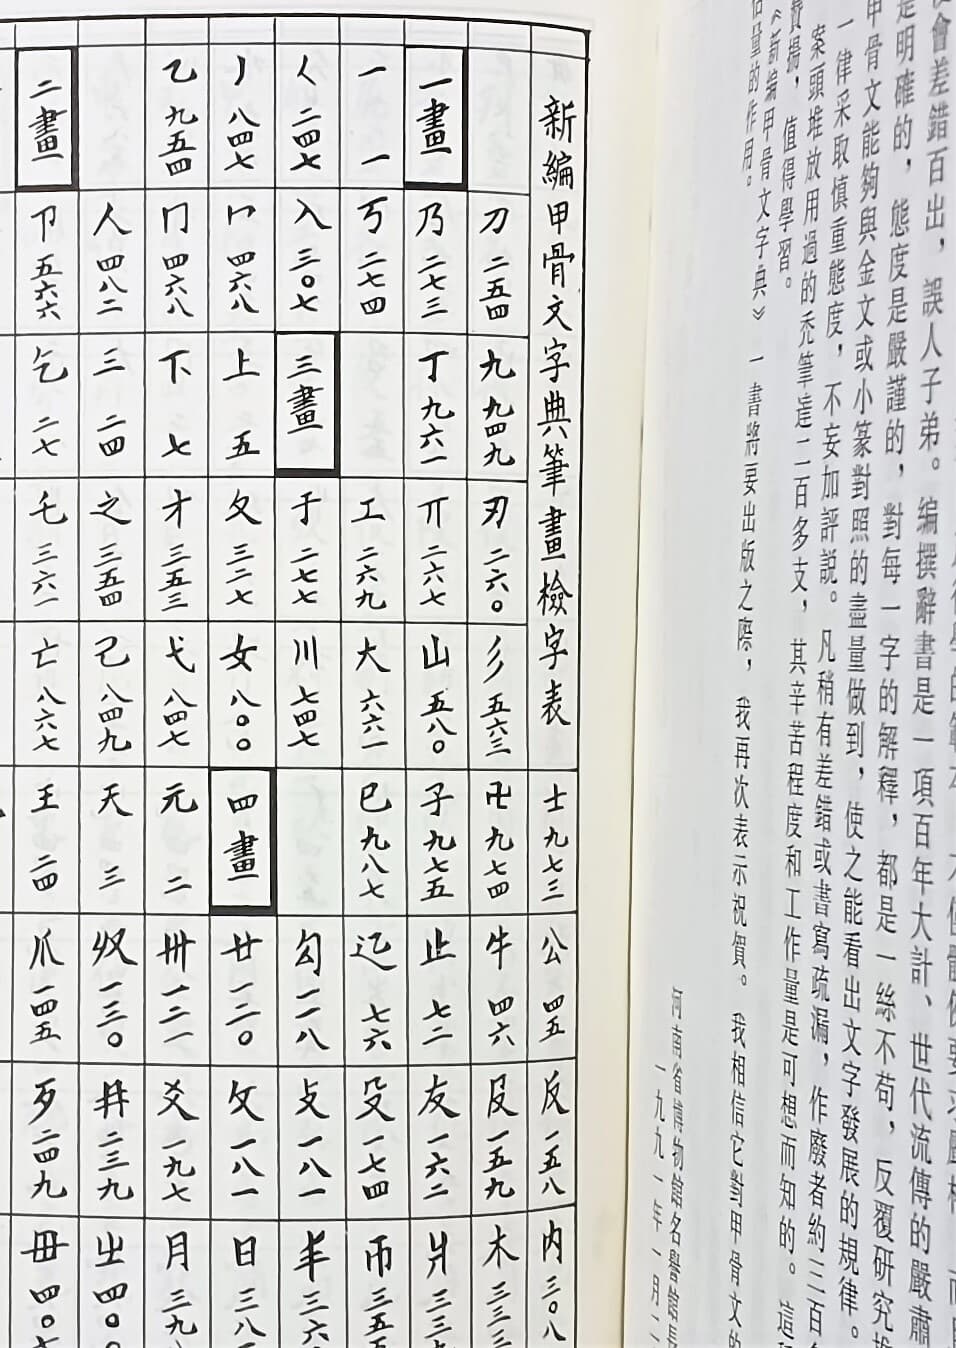 會差錯百出，誤人子弟。編撰辭書是一項百年大計、世代流傳的嚴肅
是明確的，態度是嚴謹的，對每一字的解釋，都是一絲不苟，反覆研究
甲骨文能夠與金文或小篆對照的盡量做到，使之能看出文字發展的規律。
一律采取慎重態度，不妄加評説。凡稍有差錯或書寫疏漏，作廢者約三百
案頭堆放用過的禿筆達二百多支，其辛苦程度和工作量是可想而知的。這
揚，值得學習。
《新編甲骨文字典》一書將要出版之際，我再次表示祝賀。我相信它對甲骨文的
估量的作用。
河南省博物館名譽館長
一九九一年一月二
新編甲骨文字典筆畫檢字表
一畫
一 一
〈 二四七
丿 八四七
乙 九五四
二畫
刀 二五四
乃 二七三
丂 二七四
入 三〇七
冖 四六八
冂 四六八
人 四八二
卩 五六六
九 九四九
丁 九六一
三畫
上 五
下 七
三 二四
乞 二七
刃 二六〇
丌 二六七
工 二六九
于 二七七
夂 三二七
才 三五三
之 三五四
乇 三六一
彡 五六三
山 五八〇
大 六六一
川 七四七
女 八〇〇
弋 八四七
己 八四九
亡 八六七
士 九七三
卍 九七四
子 九七五
巳 九八七
四畫
元 二
天 三
王 二四
公 四五
牛 四六
止 七二
迄 七六
勾 一一八
廿 一二〇
卅 一二一
収 一三〇
爪 一四五
反 一五八
𠬝 一五九
友 一六二
殳 一七四
攴 一八一
攵 一八一
爻 一九七
冄 二三九
歹 二四九
内 三〇八
木 三三三
爿 三三
帀 三五
丰 三六
日 三八
月 三九
出 四〇
毌 四〇